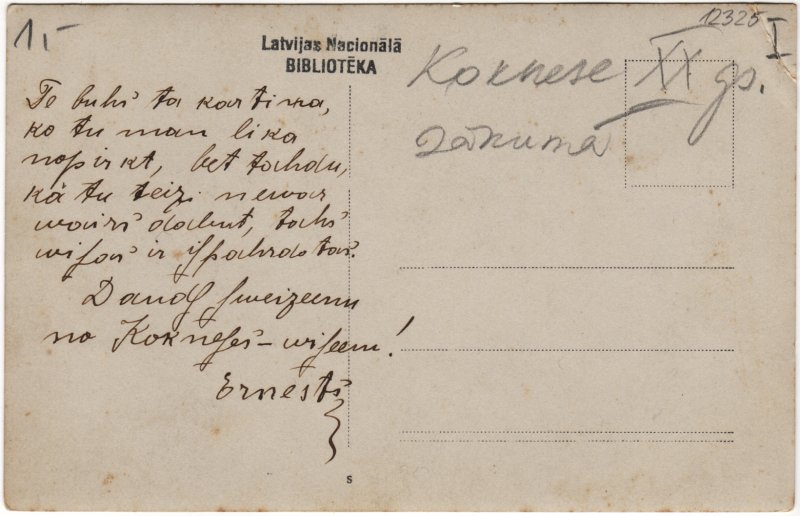 1,-
12325
I
Latvijas Nacionālā
BIBLIOTĒKA
Koknese XX gs.
sākumā
Te buhs ta kartiņa,
ko tu man lika
nopirkt, bet tahdu,
kā tu teizi newar
wairs dabut, tahs
wiſas ir iſpahrdotas.
Daudſ ſweizeenu
no Kokneſes – wiſeem!
Ernests
s